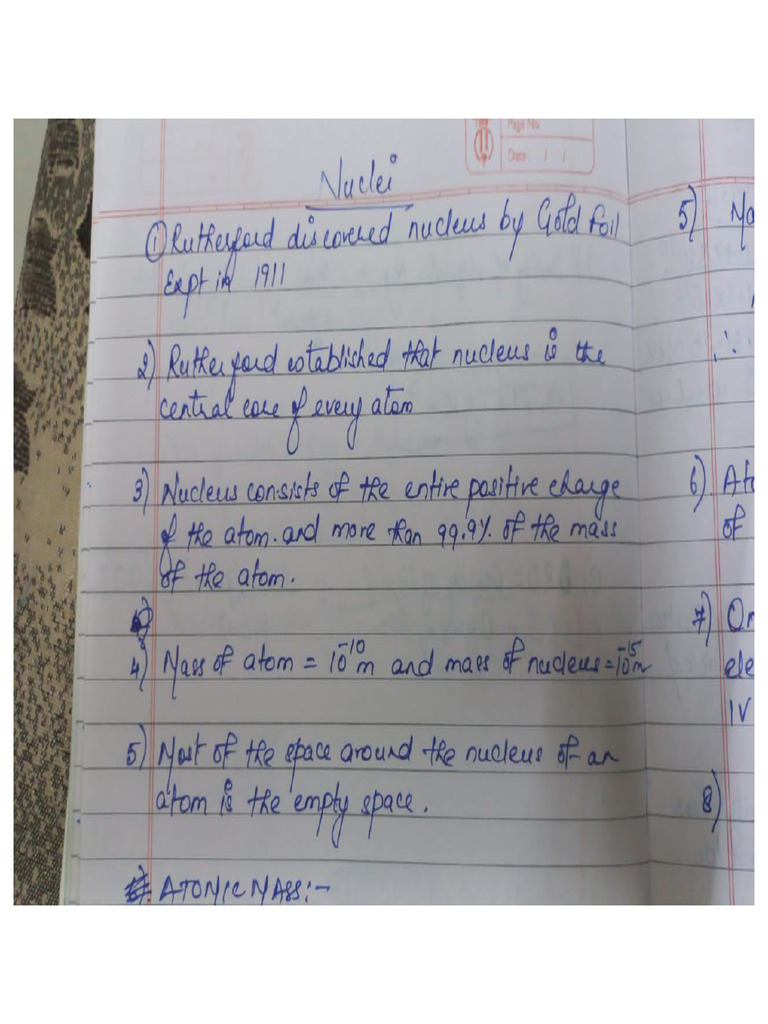 Page No.
Date: / /
Nuclei
① Rutherford discovered nucleus by Gold Foil
Expt in 1911
2) Rutherford established that nucleus is the
central core of every atom
3) Nucleus consists of the entire positive charge
of the atom. and more than 99.9% of the mass
of the atom.
4) Mass of atom = 10⁻¹⁰m and mass of nucleus = 10⁻¹⁵m
5) Most of the space around the nucleus of an
atom is the empty space.
ATOMIC MASS:-
5) Ma
∴
6) Ato
of
7) On
ele
1V
8)